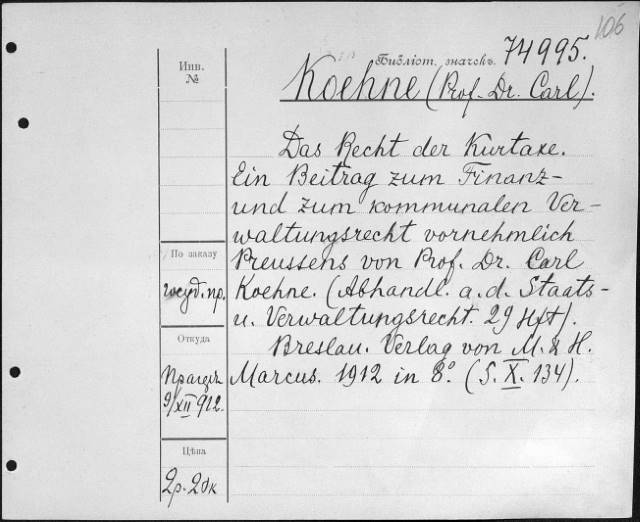 106
Библіот. значекъ 74995.
Koehne (Prof. Dr. Carl).
Инв.
№
Das Recht der Kurtaxe.
Ein Beitrag zum Finanz-
und zum kommunalen Ver-
waltungsrecht vornehmlich
Preussens von Prof. Dr. Carl
Koehne. (Abhandl. a. d. Staats-
u. Verwaltungsrecht. 29 Hft).
Breslau. Verlag von M. & H.
Marcus. 1912 in 8° (S. X. 134).
По заказу
госуд. пр.
Откуда
9/XII 912.
Цѣна
2р. 20к